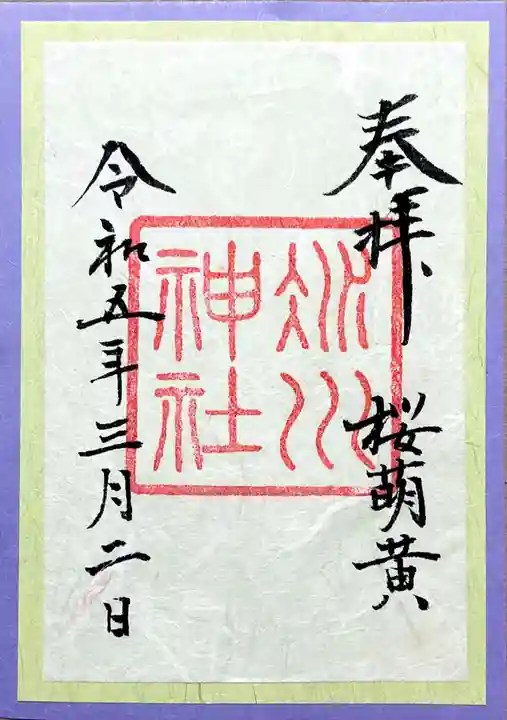 奉拝
桜萌黄
冰川
神社
令和五年三月二日